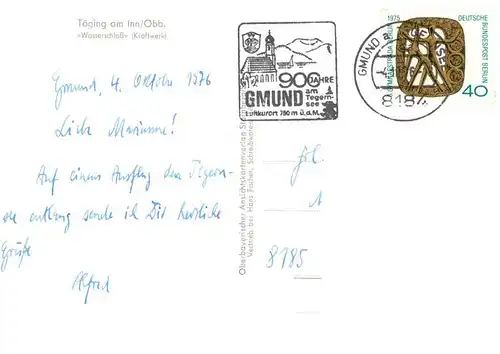 Töging am Inn/Obb.
»Wasserschloß« (Kraftwerk)
Gmund, 4. Oktober 1976
Liebe Marianne!
Auf einem Ausflug den Tegern-
see entlang sende ich Dir herzliche
Grüße
Alfred
900 JAHRE
GMUND am
Tegern-
see
Luftkurort 750 m ü.d.M.
Oberbayerischer Ansichtskartenverlag
Vertrieb bei Hans Fischer, Schreibwaren
GMUND
8184
1975
DEUTSCHE BUNDESPOST BERLIN
40
Frl.
8185